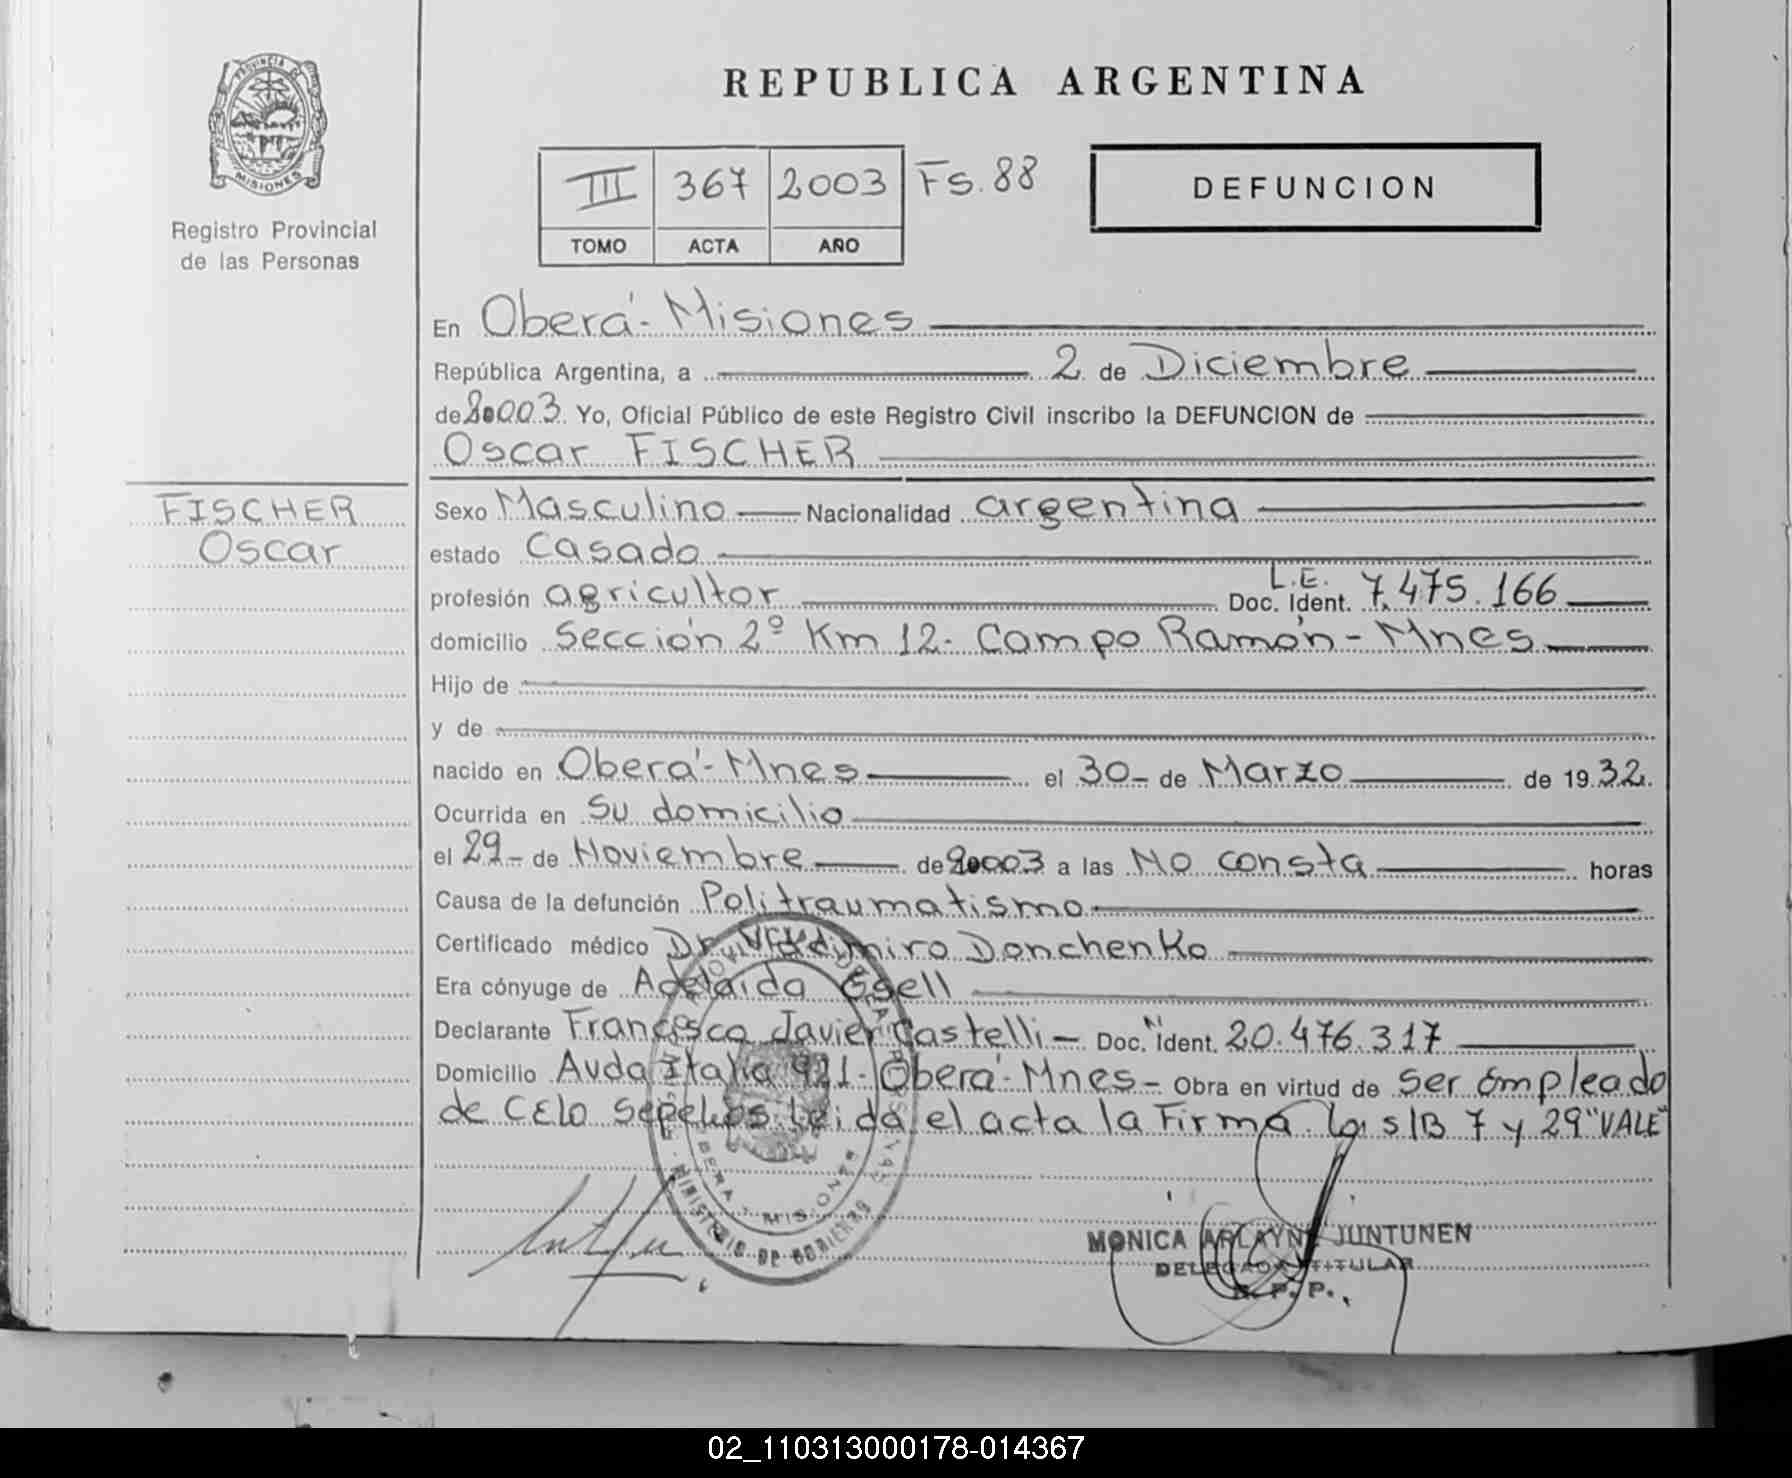 REPUBLICA ARGENTINA
PROVINCIA DE
MISIONES
Registro Provincial
de las Personas
III 367 2003 Fs. 88
TOMO ACTA AÑO
DEFUNCION
En Oberá - Misiones
República Argentina, a 2 de Diciembre
de 2003. Yo, Oficial Público de este Registro Civil inscribo la DEFUNCION de
Oscar FISCHER
FISCHER
Oscar
Sexo Masculino Nacionalidad argentina
estado Casado
profesión agricultor Doc. Ident. L.E. 7.475.166
domicilio Sección 2º Km 12 - Campo Ramón - Mnes
Hijo de
y de
nacido en Oberá - Mnes el 30 - de Marzo de 1932.
Ocurrida en Su domicilio
el 29 - de Noviembre de 2003 a las No consta horas
Causa de la defunción Politraumatismo
Certificado médico Dr. Vladimiro Donchenko
Era cónyuge de Adelaida Gsell
Declarante Francisco Javier Castelli - Doc. Ident. N 20.476.317
Domicilio Avda Italia 921 - Oberá - Mnes - Obra en virtud de ser empleado
de CELO Sepelios. Leida el acta la Firma. Lo s/B 7 y 29 "VALE"
MINISTERIO DE GOBIERNO
OBERA - MISIONES
MONICA ARLAYNE JUNTUNEN
DELEGADA TITULAR
R. P. P.
02_110313000178-014367